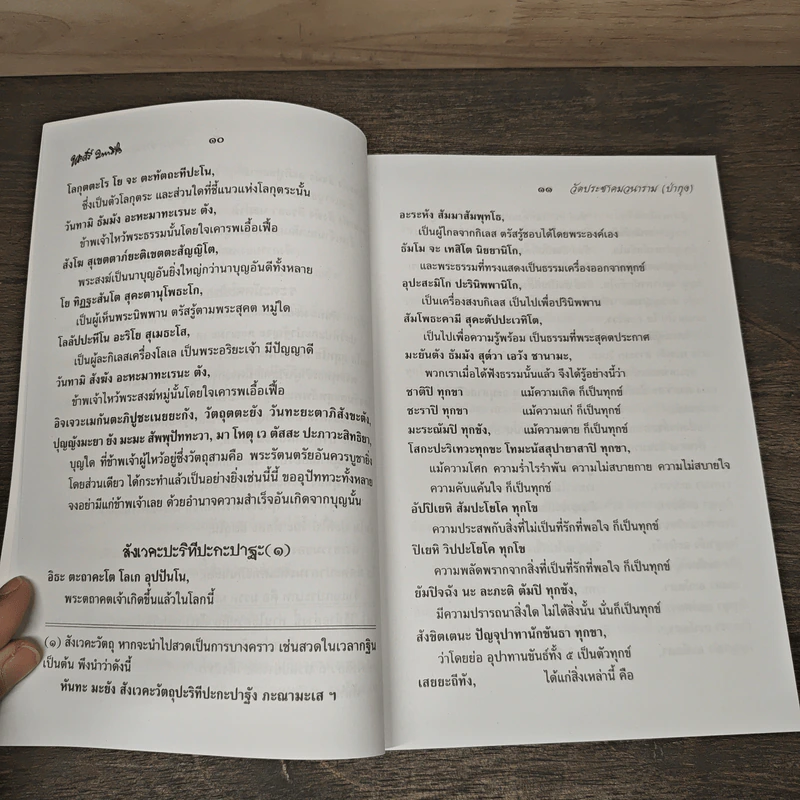 ๑๐
โลกุตตะโร โย จะ ตะทัตถะทีปะโน,
ซึ่งเป็นตัวโลกุตระ และส่วนใดที่ชี้แนวแห่งโลกุตระนั้น
วันทามิ ธัมมัง อะหะมาทะเรนะ ตัง,
ข้าพเจ้าไหว้พระธรรมนั้นโดยใจเคารพเอื้อเฟื้อ
สังโฆ สุเขตตาภ๎ยะติเขตตะสัญญิโต,
พระสงฆ์เป็นนาบุญอันยิ่งใหญ่กว่านาบุญอันดีทั้งหลาย
โย ทิฏฐะสันโต สุคะตานุโพธะโก,
เป็นผู้เห็นพระนิพพาน ตรัสรู้ตามพระสุคต หมู่ใด
โลลัปปะหีโน อะริโย สุเมธะโส,
เป็นผู้ละกิเลสเครื่องโลเล เป็นพระอริยะเจ้า มีปัญญาดี
วันทามิ สังฆัง อะหะมาทะเรนะ ตัง,
ข้าพเจ้าไหว้พระสงฆ์หมู่นั้นโดยใจเคารพเอื้อเฟื้อ
อิจเจวะเมกันตะภิปูชะเนยยะกัง, วัตถุตตะยัง วันทะยะตาภิสังขะตัง,
ปุญญังมะยา ยัง มะมะ สัพพุปัททะวา, มา โหตุ เว ตัสสะ ปะภาวะสิทธิยา,
บุญใด ที่ข้าพเจ้าผู้ไหว้อยู่ซึ่งวัตถุสามคือ พระรัตนตรัยอันควรบูชายิ่ง
โดยส่วนเดียว ได้กระทำแล้วเป็นอย่างยิ่งเช่นนี้นี้ ขออุปัททวะทั้งหลาย
จงอย่ามีแก่ข้าพเจ้าเลย ด้วยอำนาจความสำเร็จอันเกิดจากบุญนั้น
สังเวคะปะริทีปะกะปาฐะ(๑)
อิธะ ตะถาคะโต โลเก อุปปันโน,
พระตถาคตเจ้าเกิดขึ้นแล้วในโลกนี้
(๑) สังเวคะวัตถุ หากจะนำไปสวดเป็นการบางคราว เช่นสวดในเวลากฐิน
เป็นต้น พึงนำว่าดังนี้
หันทะ มะยัง สังเวคะวัตถุปะริทีปะกะปาฐัง ภะณามะเส ฯ
๑๑ วัดประชาคมวนาราม (ป่ากุง)
อะระหัง สัมมาสัมพุทโธ,
เป็นผู้ไกลจากกิเลส ตรัสรู้ชอบได้โดยพระองค์เอง
ธัมโม จะ เทสิโต นิยยานิโก,
และพระธรรมที่ทรงแสดงเป็นธรรมเครื่องออกจากทุกข์
อุปะสะมิโก ปะรินิพพานิโก,
เป็นเครื่องสงบกิเลส เป็นไปเพื่อปรินิพพาน
สัมโพธะคามี สุคะตัปปะเวทิโต,
เป็นไปเพื่อความรู้พร้อม เป็นธรรมที่พระสุคตประกาศ
มะยันตัง ธัมมัง สุต๎วา เอวัง ชานามะ,
พวกเราเมื่อได้ฟังธรรมนั้นแล้ว จึงได้รู้อย่างนี้ว่า
ชาติปิ ทุกขา แม้ความเกิด ก็เป็นทุกข์
ชะราปิ ทุกขา แม้ความแก่ ก็เป็นทุกข์
มะระณัมปิ ทุกขัง, แม้ความตาย ก็เป็นทุกข์
โสกะปะริเทวะทุกขะ โทมะนัสสุปายาสาปิ ทุกขา,
แม้ความโศก ความร่ำไรรำพัน ความไม่สบายกาย ความไม่สบายใจ
ความคับแค้นใจ ก็เป็นทุกข์
อัปปิเยหิ สัมปะโยโค ทุกโข
ความประสพกับสิ่งที่ไม่เป็นที่รักที่พอใจ ก็เป็นทุกข์
ปิเยหิ วิปปะโยโค ทุกโข
ความพลัดพรากจากสิ่งที่เป็นที่รักที่พอใจ ก็เป็นทุกข์
ยัมปิจฉัง นะ ละภะติ ตัมปิ ทุกขัง,
มีความปรารถนาสิ่งใด ไม่ได้สิ่งนั้น นั่นก็เป็นทุกข์
สังขิตเตนะ ปัญจุปาทานักขันธา ทุกขา,
ว่าโดยย่อ อุปาทานขันธ์ทั้ง ๕ เป็นตัวทุกข์
เสยยะถีทัง, ได้แก่สิ่งเหล่านี้ คือ